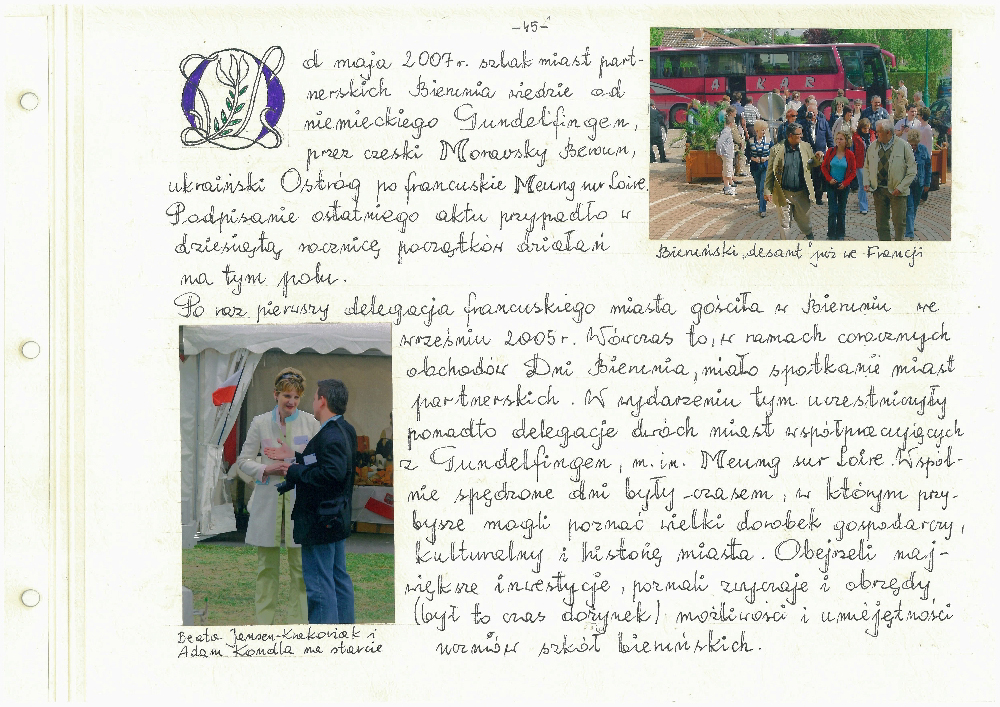 -45-
Od maja 2007r. szlak miast part-
nerskich Bierunia wiedzie od
niemieckiego Gundelfingen,
przez czeski Moravsky Beroun,
ukraiński Ostróg po francuskie Meung sur Loire.
Podpisanie ostatniego aktu przypadło w
dziesiątą rocznicę początków działań
na tym polu.
AKAR
Bieruński „desant” już we Francji
Po raz pierwszy delegacja francuskiego miasta gościła w Bieruniu we
wrześniu 2005r. Wówczas to, w ramach corocznych
obchodów Dni Bierunia, miało spotkanie miast
partnerskich. W wydarzeniu tym uczestniczyły
ponadto delegacje dwóch miast współpracujących
z Gundelfingen, m.in. Meung sur Loire. Wspól-
nie spędzone dni były czasem, w którym przy-
bysze mogli poznać wielki dorobek gospodarczy,
kulturalny i historię miasta. Obejrzeli naj-
większe inwestycje, poznali zwyczaje i obrzędy
(był to czas dożynek) możliwości i umiejętności
uczniów szkół bieruńskich.
Beata Jansen-Krakowiak i
Adam Kondla na starcie